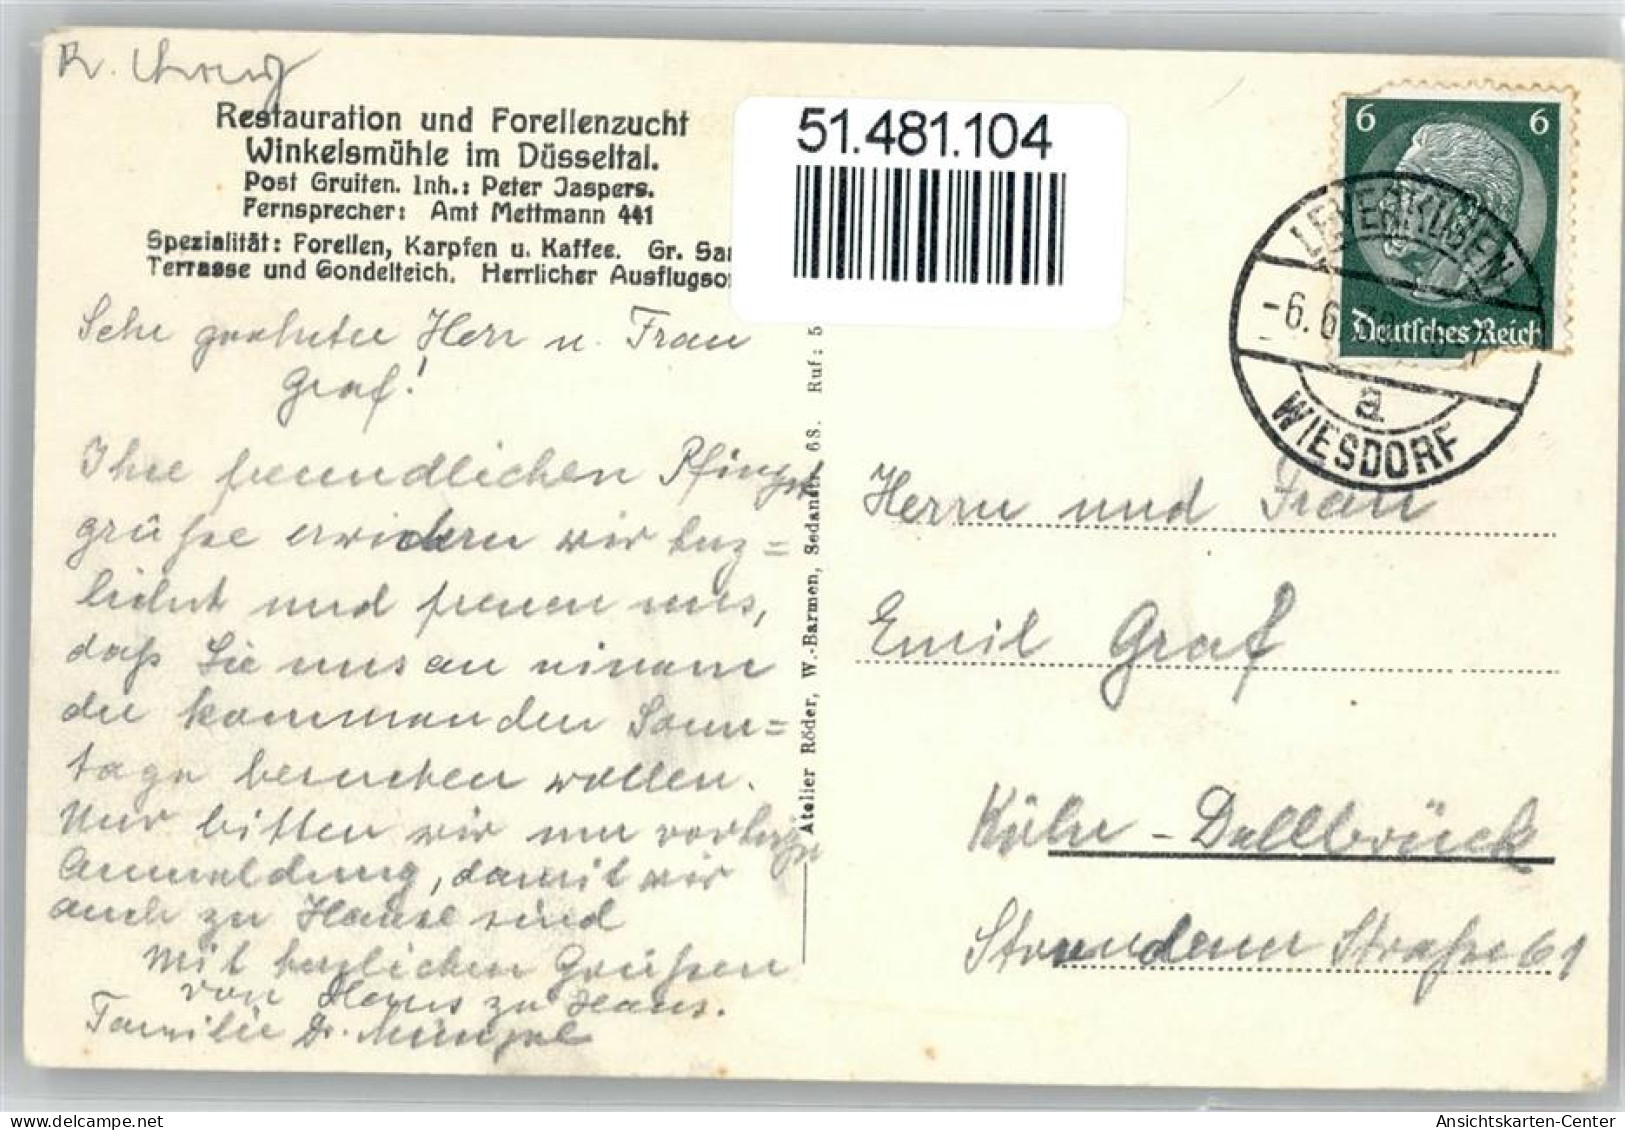 51.481.104
Restauration und Forellenzucht
Winkelsmühle im Düsseltal.
Post Gruiten. Inh.: Peter Jaspers.
Fernsprecher: Amt Mettmann 441
Spezialität: Forellen, Karpfen u. Kaffee. Gr.
Terrasse und Gondelteich. Herrlicher
Sehr geehrter Herr u. Frau
Graf!
Ihre freundlichen Pfingst
grüße erwidern wir herz=
lichst und freuen uns,
daß Sie uns an einem
der kommenden Sonn=
tage besuchen wollen.
Nur bitten wir um vorherige
Anmeldung, damit wir
auch zu Hause sind
Mit herzlichen Grüßen
von Haus zu Haus.
Familie Dr.
Atelier Röder, W.-Barmen, Sedanstr. 68. Ruf: 5
6 6
Deutsches Reich
LEVERKUSEN
-6.6.
a
WIESDORF
Herrn und Frau
Emil Graf
Köln-Dellbrück
Strundener Straße 61
Ansichtskarten-Center